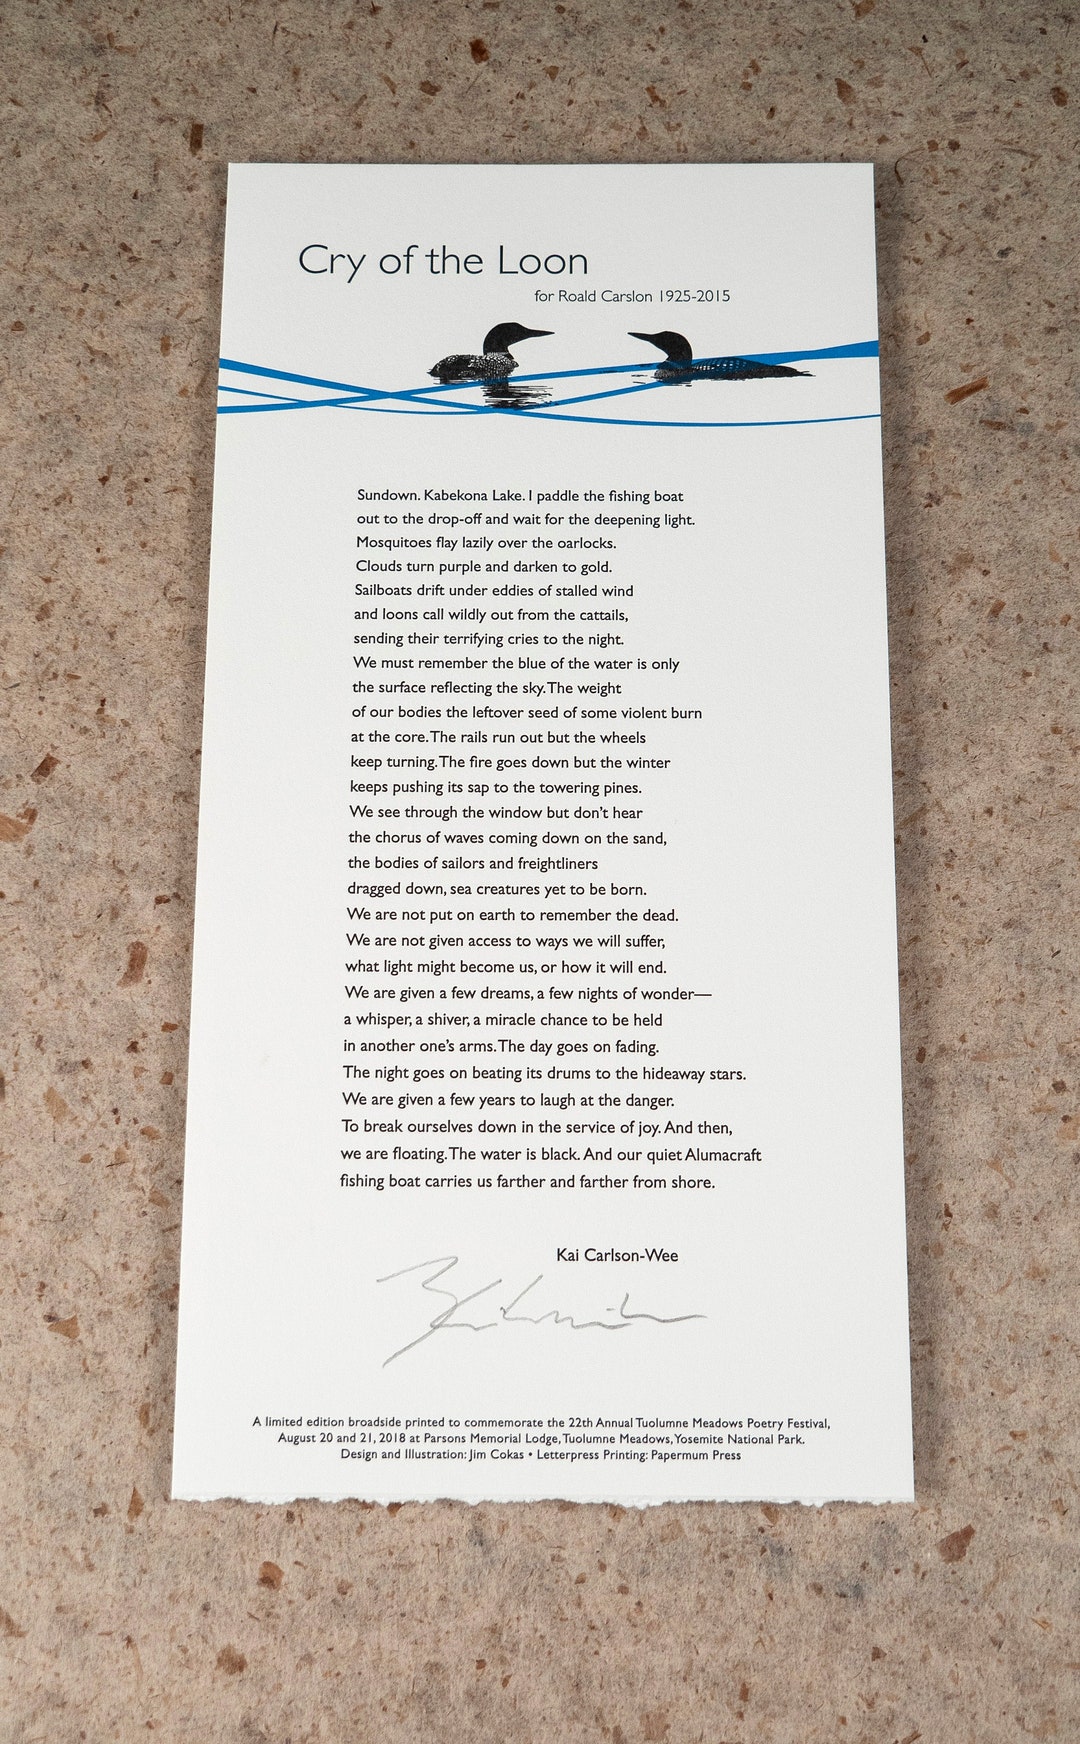 Cry of the Loon
for Roald Carslon 1925-2015
Sundown. Kabekona Lake. I paddle the fishing boat
out to the drop-off and wait for the deepening light.
Mosquitoes flay lazily over the oarlocks.
Clouds turn purple and darken to gold.
Sailboats drift under eddies of stalled wind
and loons call wildly out from the cattails,
sending their terrifying cries to the night.
We must remember the blue of the water is only
the surface reflecting the sky. The weight
of our bodies the leftover seed of some violent burn
at the core. The rails run out but the wheels
keep turning. The fire goes down but the winter
keeps pushing its sap to the towering pines.
We see through the window but don't hear
the chorus of waves coming down on the sand,
the bodies of sailors and freightliners
dragged down, sea creatures yet to be born.
We are not put on earth to remember the dead.
We are not given access to ways we will suffer,
what light might become us, or how it will end.
We are given a few dreams, a few nights of wonder—
a whisper, a shiver, a miracle chance to be held
in another one's arms. The day goes on fading.
The night goes on beating its drums to the hideaway stars.
We are given a few years to laugh at the danger.
To break ourselves down in the service of joy. And then,
we are floating. The water is black. And our quiet Alumacraft
fishing boat carries us farther and farther from shore.
Kai Carlson-Wee
A limited edition broadside printed to commemorate the 22th Annual Tuolumne Meadows Poetry Festival,
August 20 and 21, 2018 at Parsons Memorial Lodge, Tuolumne Meadows, Yosemite National Park.
Design and Illustration: Jim Cokas • Letterpress Printing: Papermum Press